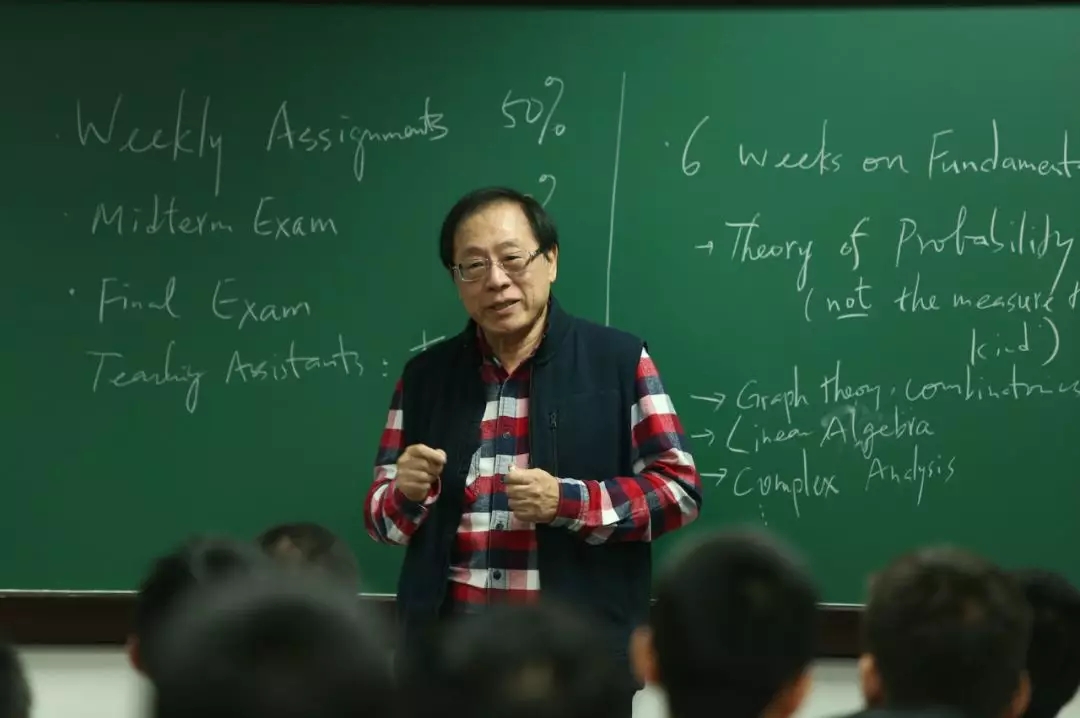 Weekly Assignments 50%
Midterm Exam %
Final Exam
Teaching Assistants :
6 Weeks on Fundament
→ Theory of Probability
(not the measure
kind)
→ Graph theory, combinatorics
→ Linear Algebra
→ Complex Analysis